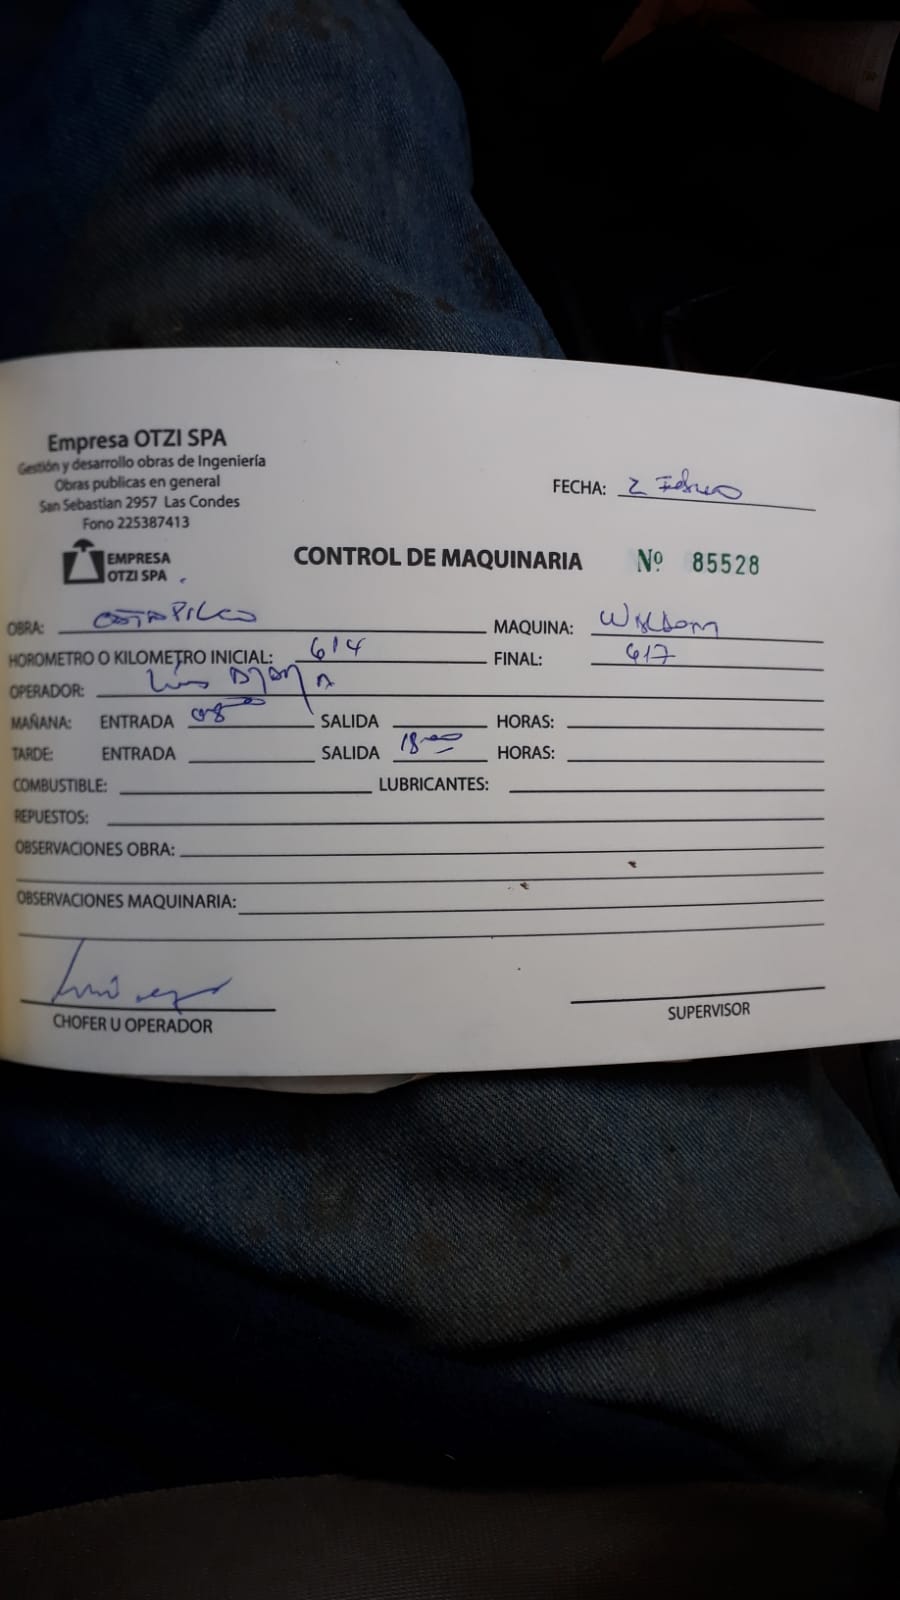 Empresa OTZI SPA
Gestión y desarrollo obras de Ingeniería
Obras publicas en general
San Sebastian 2957 Las Condes
Fono 225387413
FECHA: 2 Febrero
EMPRESA
OTZI SPA
CONTROL DE MAQUINARIA Nº 85528
OBRA: MAQUINA:
HOROMETRO O KILOMETRO INICIAL: 614 FINAL: 617
OPERADOR: Luis
MAÑANA: ENTRADA 08 SALIDA HORAS:
TARDE: ENTRADA SALIDA 18 HORAS:
COMBUSTIBLE: LUBRICANTES:
REPUESTOS:
OBSERVACIONES OBRA:
OBSERVACIONES MAQUINARIA:
CHOFER U OPERADOR SUPERVISOR